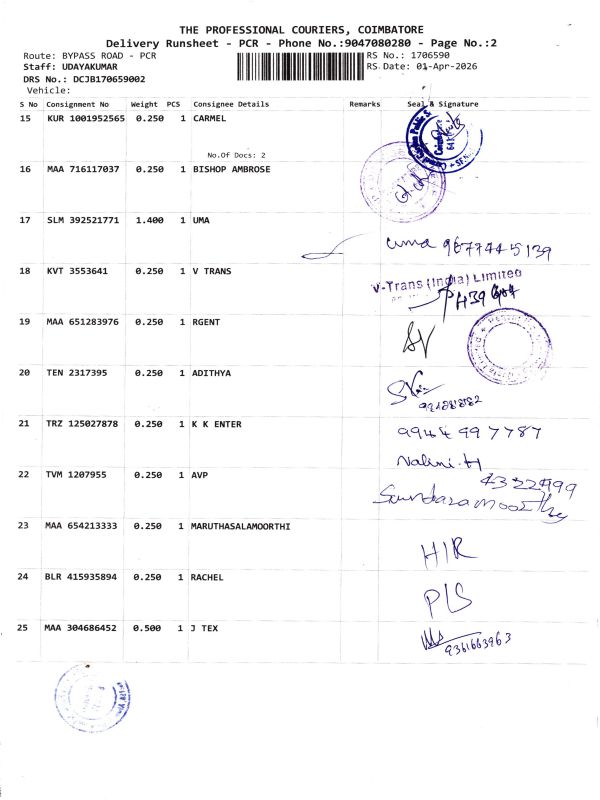 THE PROFESSIONAL COURIERS, COIMBATORE
Delivery Runsheet - PCR - Phone No.:9047080280 - Page No.:2
Route: BYPASS ROAD - PCR RS No.: 1706590
Staff: UDAYAKUMAR RS Date: 01-Apr-2026
DRS No.: DCJB170659002
Vehicle:
S No Consignment No Weight PCS Consignee Details Remarks Seal & Signature
15 KUR 1001952565 0.250 1 CARMEL
No.Of Docs: 2
16 MAA 716117037 0.250 1 BISHOP AMBROSE
17 SLM 392521771 1.400 1 UMA
uma 9677445139
18 KVT 3553641 0.250 1 V TRANS
V-Trans (India) Limited
19 MAA 651283976 0.250 1 RGENT
SV
20 TEN 2317395 0.250 1 ADITHYA
21 TRZ 125027878 0.250 1 K K ENTER
9944997787
Nalini.H
22 TVM 1207955 0.250 1 AVP
4322999
Soundaramoorthy
23 MAA 654213333 0.250 1 MARUTHASALAMOORTHI
H/R
24 BLR 415935894 0.250 1 RACHEL
PLS
25 MAA 304686452 0.500 1 J TEX
9361663963